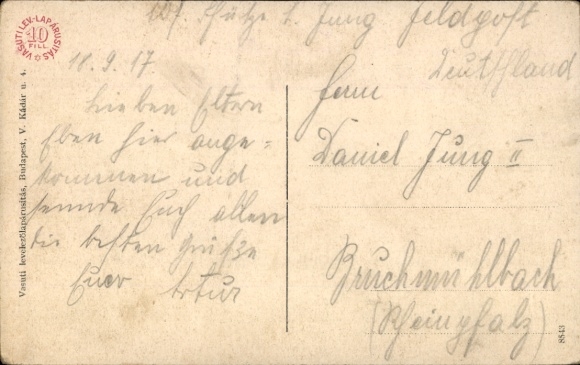 Abs. Schütze L. Jung Feldpost
Deutschland
VASUTI LEV.-LAPÁRUSITÁS
10
FILL.
18.9.17.
Lieben Eltern
Eben hier ange-
kommen und
sende Euch allen
die besten Grüße
Euer Artur
Herrn
Daniel Jung II
Bruchmühlbach
(Rheinpfalz)
Vasuti levelezőlapárusitás, Budapest, V. Kádár u. 4.
8543